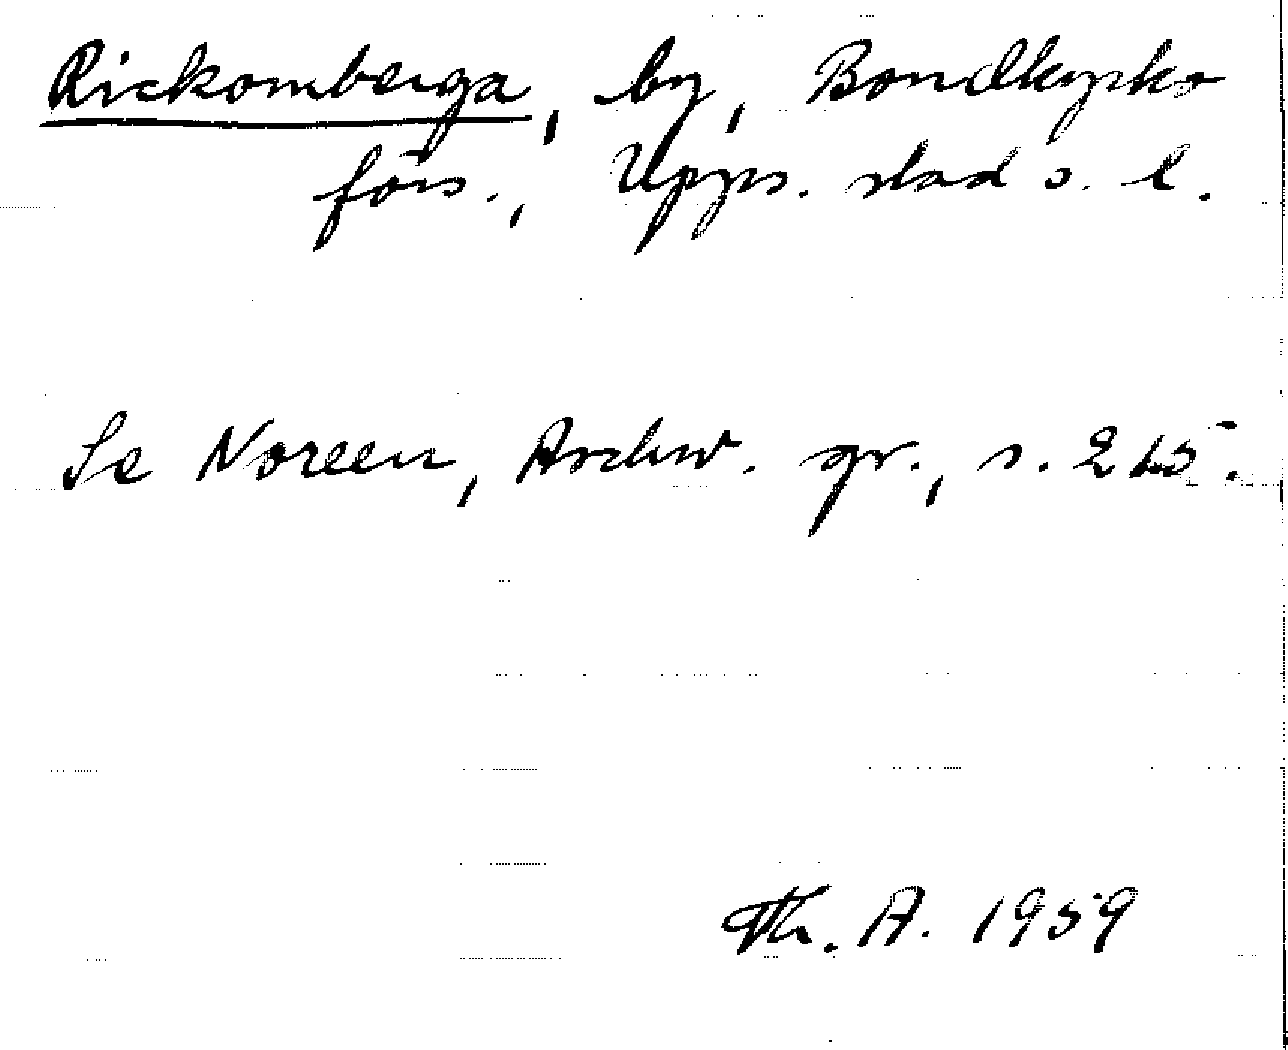 Rickomberga, by, Bondkyrko
förs., Upps. stad o. l.
Se Noreen, Aschw. gr., s. 215.
Th. A. 1959